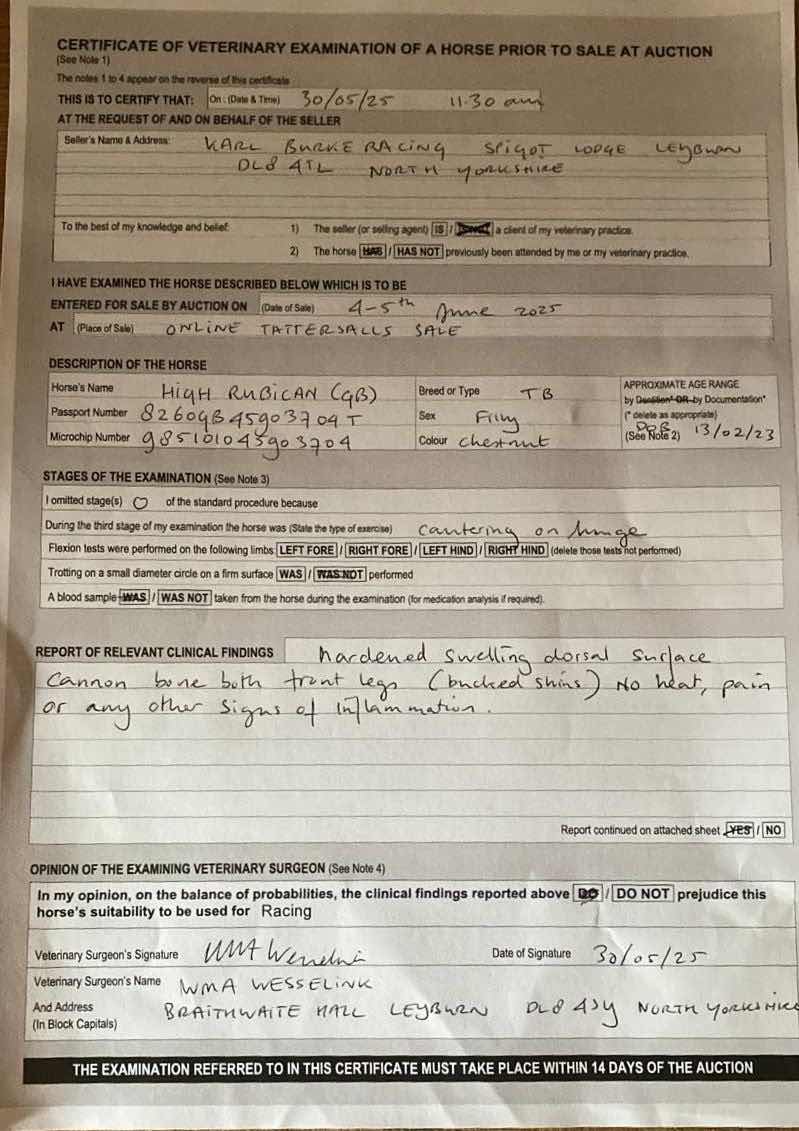 CERTIFICATE OF VETERINARY EXAMINATION OF A HORSE PRIOR TO SALE AT AUCTION
(See Note 1)
The notes 1 to 4 appear on the reverse of this certificate
THIS IS TO CERTIFY THAT: On : (Date & Time) 30/05/25 11.30 am
AT THE REQUEST OF AND ON BEHALF OF THE SELLER
Seller's Name & Address: KARL BURKE RACING SPIGOT LODGE LEYBURN
DL8 4TL NORTH YORKSHIRE
To the best of my knowledge and belief: 1) The seller (or selling agent) IS / a client of my veterinary practice.
2) The horse HAS / HAS NOT previously been attended by me or my veterinary practice.
I HAVE EXAMINED THE HORSE DESCRIBED BELOW WHICH IS TO BE
ENTERED FOR SALE BY AUCTION ON (Date of Sale) 4-5th June 2025
AT (Place of Sale) ONLINE TATTERSALLS SALE
DESCRIPTION OF THE HORSE
Horse's Name HIGH RUBICAN (GB) Breed or Type TB APPROXIMATE AGE RANGE
by Dentition* OR by Documentation*
Passport Number 8260GB45903704T Sex Filly (* delete as appropriate)
Microchip Number 985101045903704 Colour chestnut (See Note 2) DOB 13/02/23
STAGES OF THE EXAMINATION (See Note 3)
I omitted stage(s) 0 of the standard procedure because
During the third stage of my examination the horse was (State the type of exercise) cantering on lunge
Flexion tests were performed on the following limbs: LEFT FORE / RIGHT FORE / LEFT HIND / RIGHT HIND (delete those tests not performed)
Trotting on a small diameter circle on a firm surface WAS / WAS NOT performed
A blood sample WAS / WAS NOT taken from the horse during the examination (for medication analysis if required).
REPORT OF RELEVANT CLINICAL FINDINGS hardened swelling dorsal surface
Cannon bone both front legs (bucked shins) No heat, pain
or any other signs of inflammation.
Report continued on attached sheet YES / NO
OPINION OF THE EXAMINING VETERINARY SURGEON (See Note 4)
In my opinion, on the balance of probabilities, the clinical findings reported above DO / DO NOT prejudice this
horse's suitability to be used for Racing
Veterinary Surgeon's Signature Date of Signature 30/05/25
Veterinary Surgeon's Name WMA WESSELINK
And Address BRAITHWAITE HALL LEYBURN DL8 4SY NORTH YORKSHIRE
(In Block Capitals)
THE EXAMINATION REFERRED TO IN THIS CERTIFICATE MUST TAKE PLACE WITHIN 14 DAYS OF THE AUCTION